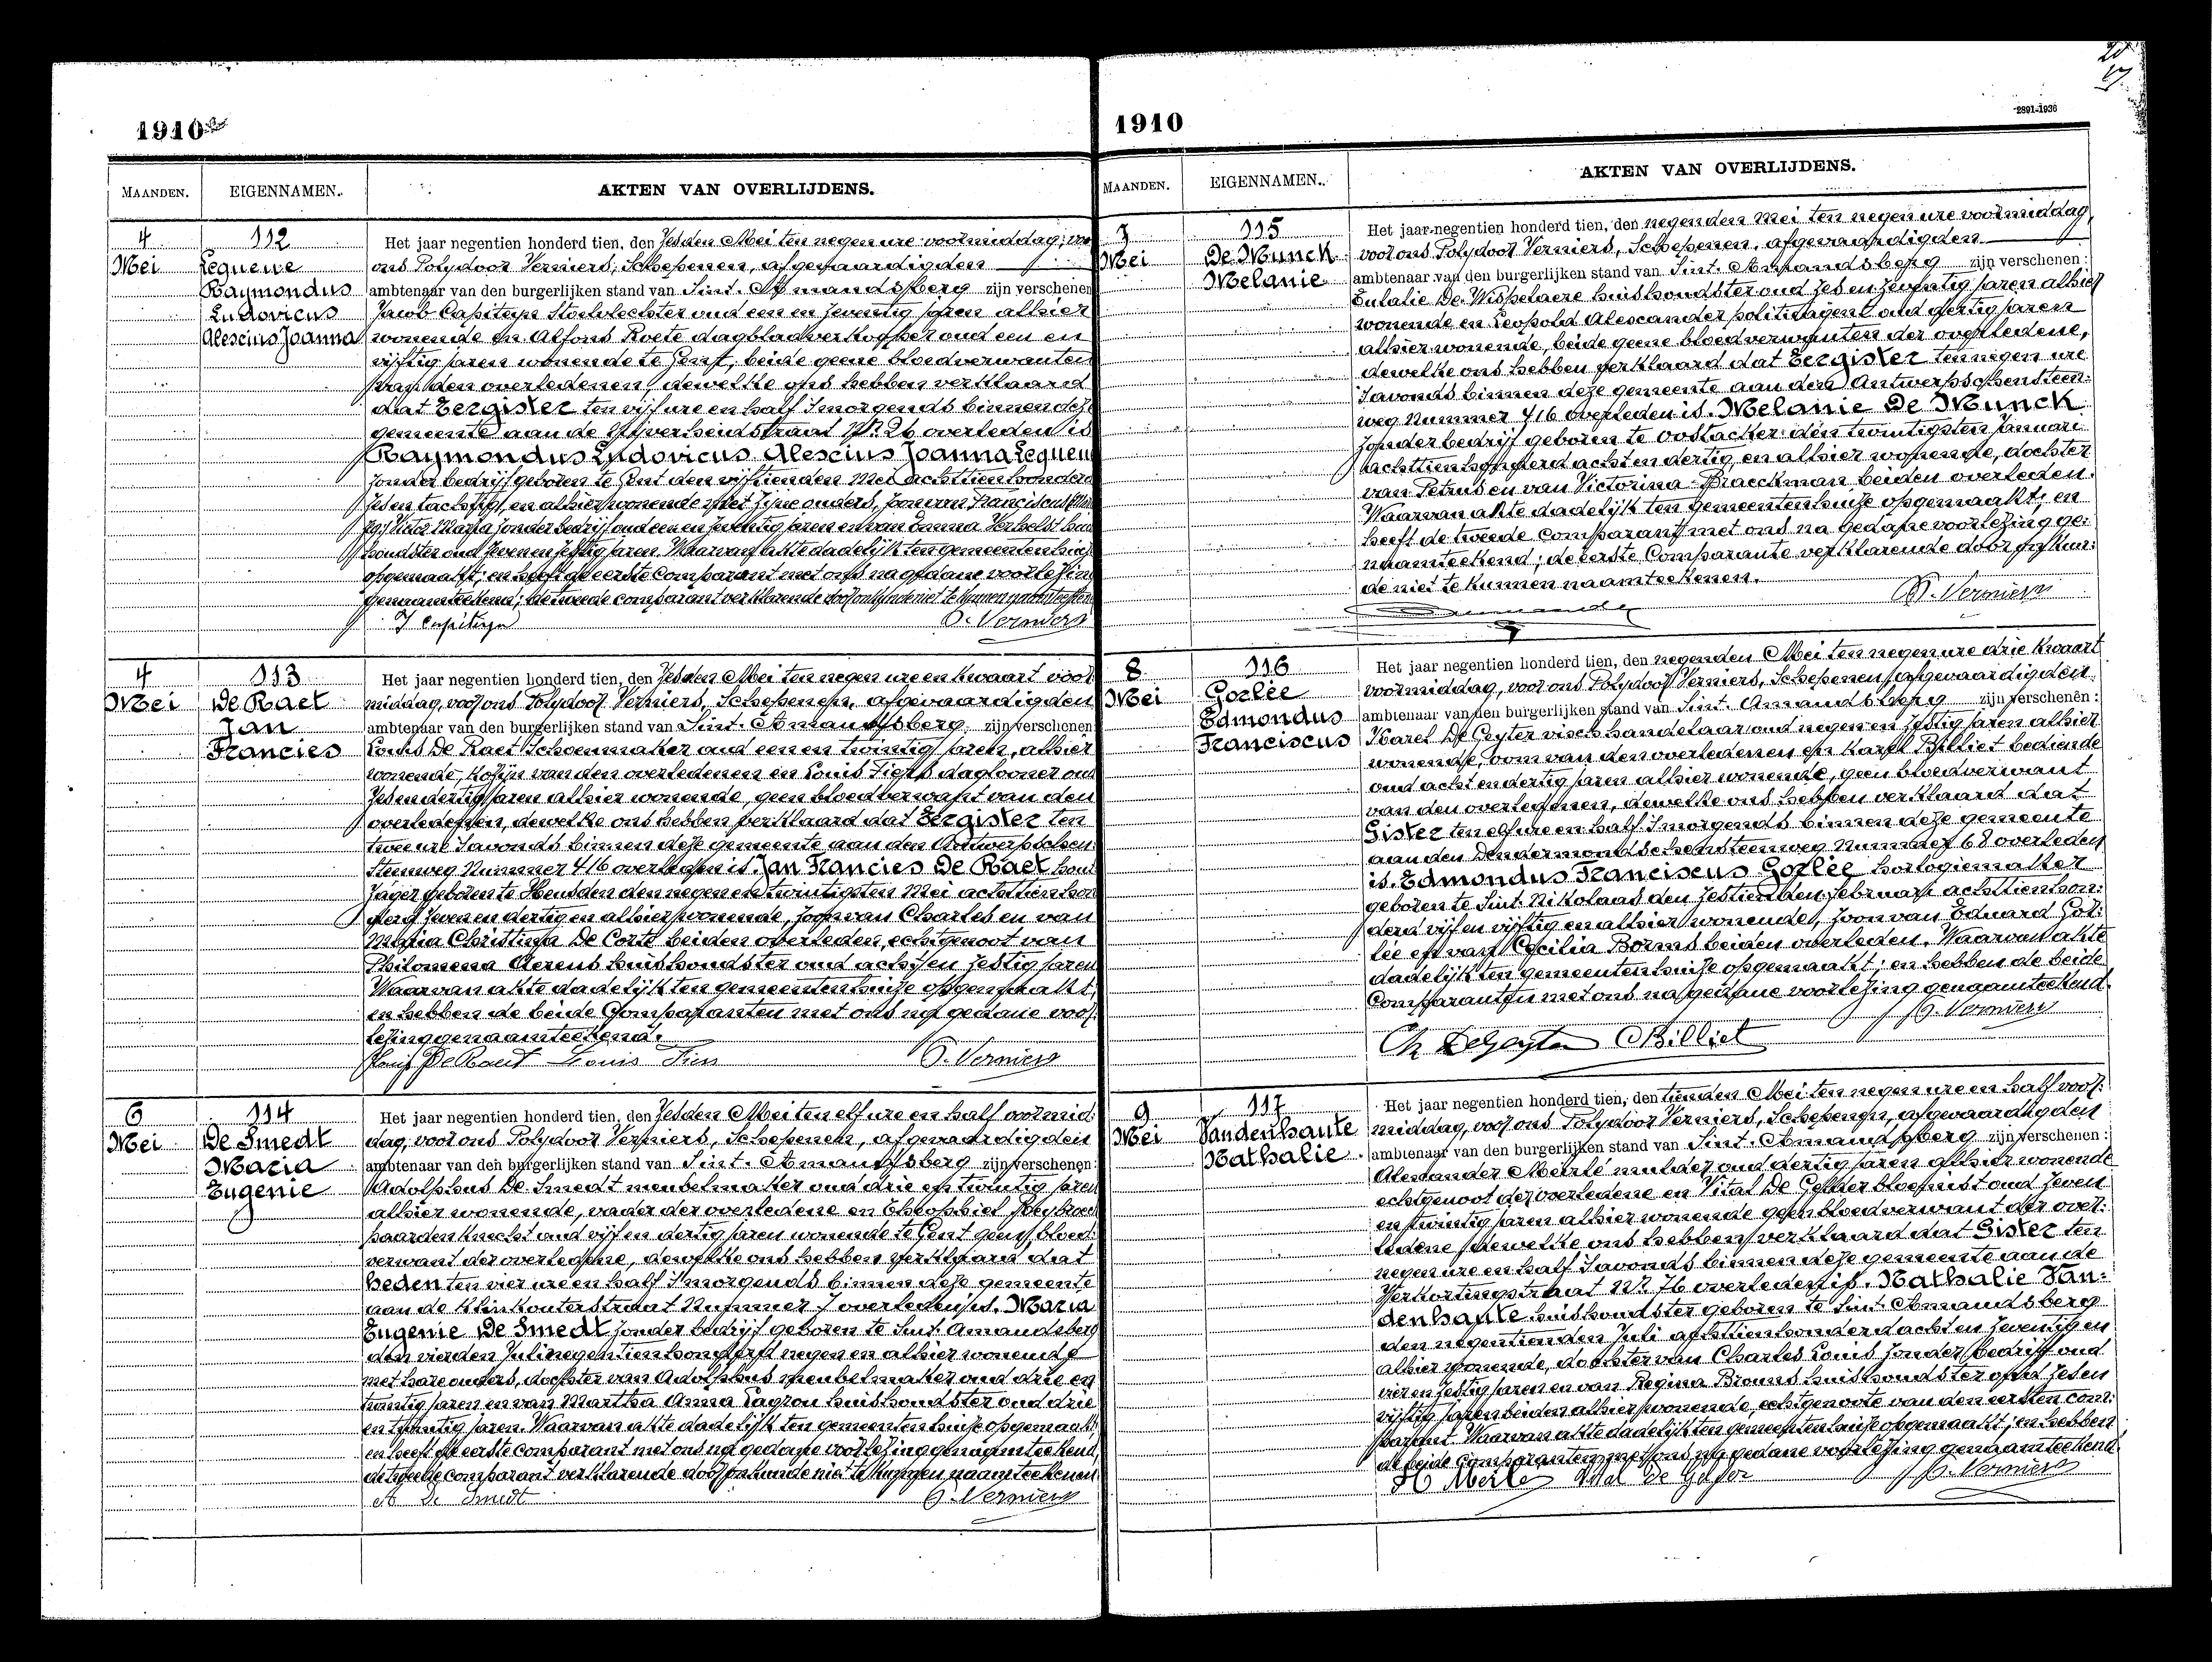 1910
MAANDEN. EIGENNAMEN. AKTEN VAN OVERLIJDENS.
4 Mei
112
Lequeue
Raymondus
Ludovicus
Alescius Joanna
Het jaar negentien honderd tien, den zesden Mei ten negen ure voormiddag, voor
ons Polydoor Verniers, Schepenen, afgevaardigden
ambtenaar van den burgerlijken stand van Sint. Amandsberg zijn verschenen
Jacob Capiteyn Stoelvlechter oud een en zeventig jaren alhier
wonende en Alfons Roete dagbladverkooper oud een en
vijftig jaren wonende te Gent, beide geene bloedverwanten
van den overledenen, dewelke ons hebben verklaard
dat Eergister ten vijf ure en half smorgends binnen deze
gemeente aan de Nijverheidstraat Nr. 26 overleden is
Raymondus Ludovicus Alescius Joanna Lequeu
zonder bedrijf geboren te Gent den vijftienden Mei achttienhonderd
zes en tachtig, en alhier wonende met zijne ouders, zoon van Franciscus
Maria zonder bedrijf oud een en zeventig jaren en van Emma Verhelst huis
houdster oud zeven en zestig jaren. Waarvan akte dadelijk ten gemeentenhuize
opgemaakt; en heeft de eerste comparant met ons na gedane voorlezing
genaamteekend; de tweede comparant verklarende door onkunde niet te kunnen naamteekenen
J Capiteyn P. Verniers
4 Mei
113
De Raet
Jan
Francies
Het jaar negentien honderd tien, den zesden Mei ten negen ure en kwaart voor
middag, voor ons Polydoor Verniers, Schepenen, afgevaardigden
ambtenaar van den burgerlijken stand van Sint. Amandsberg zijn verschenen
Louis De Raet Schoenmaker oud een en twintig jaren, alhier
wonende, kozijn van den overledenen en Louis Fiers dagloner oud
zes en dertig jaren alhier wonende, geen bloedverwant van den
overledenen, dewelke ons hebben verklaard dat Eergister ten
twee ure savonds binnen deze gemeente aan den Antwerpschen
Steenweg Nummer 416 overleden is. Jan Francies De Raet hout
zager geboren te Heusden den negen en twintigsten Mei achttienhon
derd zeven en dertig en alhier wonende, zoon van Charles en van
Maria Christina De Corte beiden overleden, echtgenoot van
Philomena Aerens huishoudster oud acht en zestig jaren
Waarvan akte dadelijk ten gemeentenhuize opgemaakt,
en hebben de beide Comparanten met ons na gedane voor
lezing genaamteekend.
Louis De Raedt Louis Fiers P. Verniers
6 Mei
114
De Smedt
Maria
Eugenie
Het jaar negentien honderd tien, den zesden Mei ten elf ure en half voormid:
dag, voor ons Polydoor Verniers, Schepenen, afgevaardigden
ambtenaar van den burgerlijken stand van Sint. Amandsberg zijn verschenen:
Adolphus De Smedt meubelmaker oud drie en twintig jaren
alhier wonende, vader der overledene en Theophiel
paardenknecht oud vijf en dertig jaren wonende te Gent geen bloed:
verwant der overledene, dewelke ons hebben verklaard dat
heden ten vier ure en half smorgends binnen deze gemeente
aan de Klinkouterstraat Nummer 7 overleden is. Maria
Eugenie De Smedt zonder bedrijf geboren te Sint. Amandsberg
den vierden Juli negentienhonderd negen en alhier wonende
met hare ouders, dochter van Adolphus meubelmaker oud drie en
twintig jaren en van Martha Anna Lagrou huishoudster oud drie
en twintig jaren. Waarvan akte dadelijk ten gemeentenhuize opgemaakt,
en heeft de eerste comparant met ons na gedane voorlezing genaamteekend,
de tweede comparant verklarende door onkunde niet te kunnen naamteekenen
A De Smedt P. Verniers
1910
2891-1936
MAANDEN. EIGENNAMEN. AKTEN VAN OVERLIJDENS.
7 Mei
115
De Munck
Melanie
Het jaar negentien honderd tien, den negenden Mei ten negen ure voormiddag,
voor ons Polydoor Verniers, Schepenen, afgevaardigden
ambtenaar van den burgerlijken stand van Sint. Amandsberg zijn verschenen:
Eulalie De Wispelaere huishoudster oud zes en zeventig jaren alhier
wonende en Leopold Alescander politieagent oud dertig jaren
alhier wonende, beide geene bloedverwanten der overledene,
dewelke ons hebben verklaard dat Eergister ten negen ure
savonds binnen deze gemeente aan den Antwerpschensteen:
weg Nummer 416 overleden is. Melanie De Munck
zonder bedrijf geboren te Oostacker den twintigsten Januari
achttienhonderd acht en dertig en alhier wonende, dochter
van Petrus en van Victorina Braeckman beiden overleden.
Waarvan akte dadelijk ten gemeentenhuize opgemaakt, en
heeft de tweede Comparant met ons na gedane voorlezing ge:
naamteekend; de eerste Comparante verklarende door onkun:
de niet te kunnen naamteekenen.
P. Verniers
8 Mei
116
Gorlée
Edmondus
Franciscus
Het jaar negentien honderd tien, den negenden Mei ten negen ure drie kwaart
voormiddag, voor ons Polydoor Verniers, Schepenen, afgevaardigden
ambtenaar van den burgerlijken stand van Sint. Amandsberg zijn verschenen:
Karel De Geyter vischhandelaar oud negen en zestig jaren alhier
wonende, oom van den overledenen en Karel Billiet bediende
oud acht en dertig jaren alhier wonende, geen bloedverwant
van den overledenen, dewelke ons hebben verklaard dat
Gister ten elf ure en half smorgends binnen deze gemeente
aan den Dendermondschensteenweg Nummer 68 overleden
is. Edmondus Franciscus Gorlée horlogiemaker
geboren te Sint. Nikolaas den zestienden februari achttienhon:
derd vijf en vijftig en alhier wonende, zoon van Eduard Gor:
lée en van Cecilia Borms beiden overleden. Waarvan akte
dadelijk ten gemeentenhuize opgemaakt; en hebben de beide
Comparanten met ons na gedane voorlezing genaamteekend.
P. Verniers
Ch DeGeyter CBilliet
9 Mei
117
Vandenhaute
Nathalie
Het jaar negentien honderd tien, den tienden Mei ten negen ure en half voor:
middag, voor ons Polydoor Verniers, Schepenen, afgevaardigden
ambtenaar van den burgerlijken stand van Sint. Amandsberg zijn verschenen:
Alescander Meirlé mulder oud dertig jaren alhier wonende
echtgenoot der overledene en Vital De Gelder bloemist oud zeven
en twintig jaren alhier wonende geen bloedverwant der over:
ledene, dewelke ons hebben verklaard dat Gister ten
negen ure en half savonds binnen deze gemeente aan de
Verkortingstraat Nr. 76 overleden is. Nathalie Van:
denhaute huishoudster geboren te Sint. Amandsberg
den negentienden Juli achttienhonderd acht en zeventig en
alhier wonende, dochter van Charles Louis zonder bedrijf oud
vier en zestig jaren en van Regina Brouns huishoudster oud zes en
vijftig jaren beiden alhier wonende, echtgenoote van den eersten com:
parant. Waarvan akte dadelijk ten gemeentenhuize opgemaakt; en hebben
de beide comparanten met ons na gedane voorlezing genaamteekend
P. Verniers